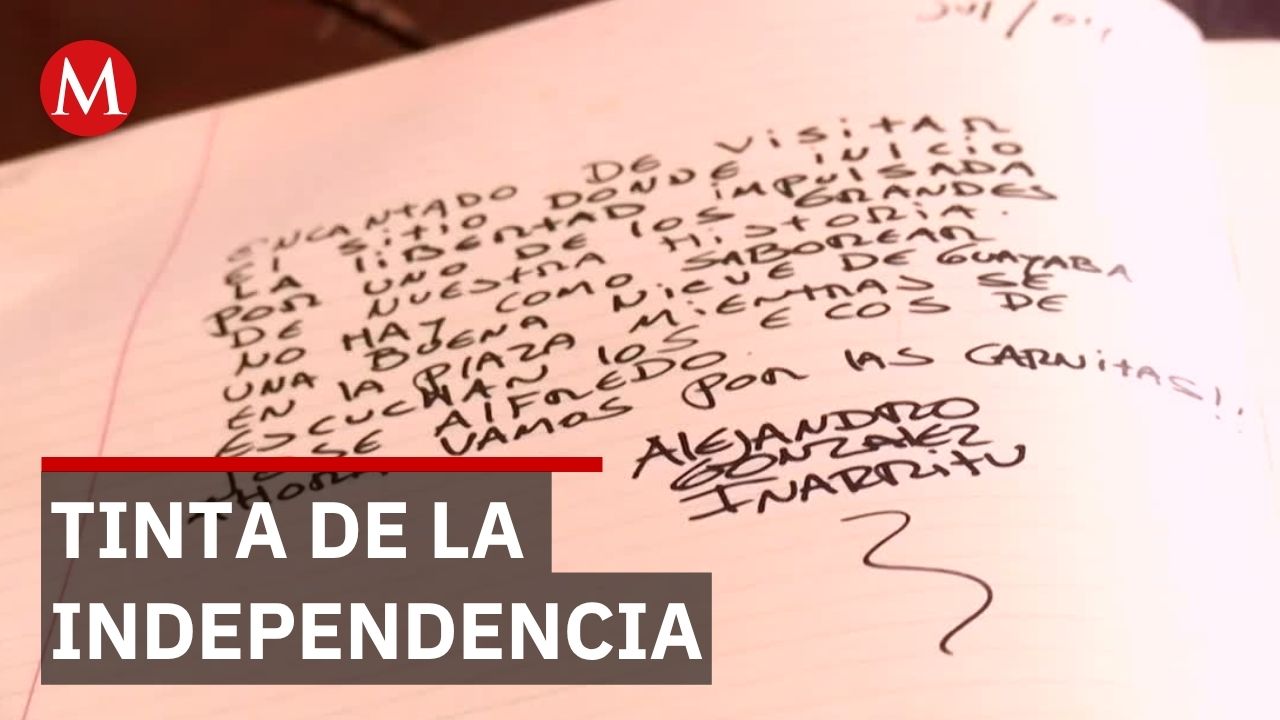 M
JUL/04
ENCANTADO DE VISITAR
EL SITIO DONDE INICIO
LA LIBERTAD IMPULSADA
POR UNO DE LOS GRANDES
DE NUESTRA HISTORIA.
NO HAY COMO SABOREAR
UNA BUENA NIEVE DE GUAYABA
EN LA PLAZA MIENTRAS SE
ESCUCHAN LOS ECOS DE
JOSE ALFREDO.
AHORA VAMOS POR LAS CARNITAS!!
ALEJANDRO
GONZALEZ
IÑARRITU
TINTA DE LA
INDEPENDENCIA